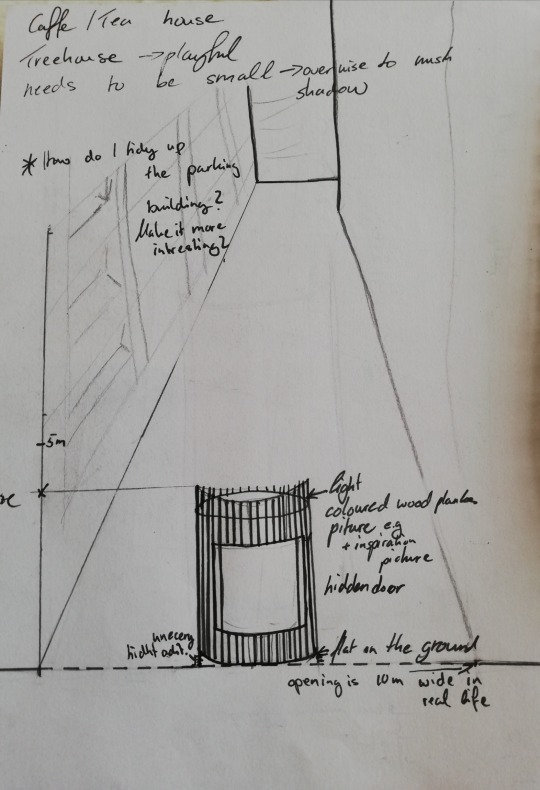 Caffe / Tea house
Treehouse → playful
needs to be small → overwise to mush
shadow
* How do I tidy up
the parking
building?
Make it more
intresting?
5m
light
coloured wood planks
piture e.g
+ inspiration
picture
hidden door
flat on the ground
opening is 10m wide in
real life